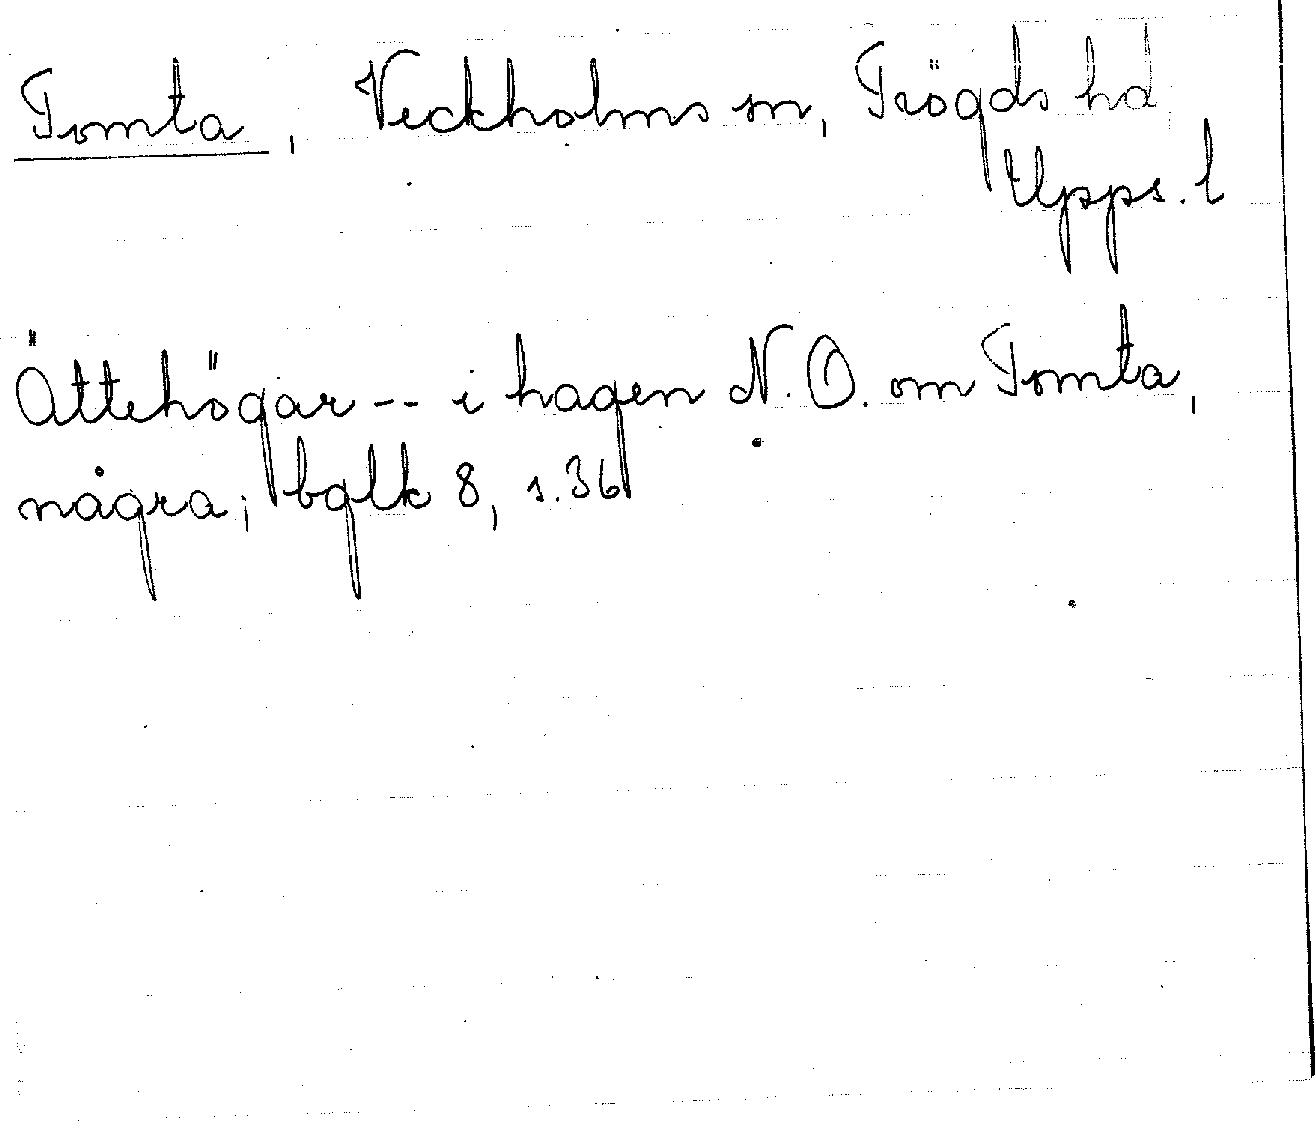 Tomta, Veckholms sn, Trögds hd,
Upps. l
Ättehögar -- i hagen N.O. om Tomta,
några; bglk 8, s.36